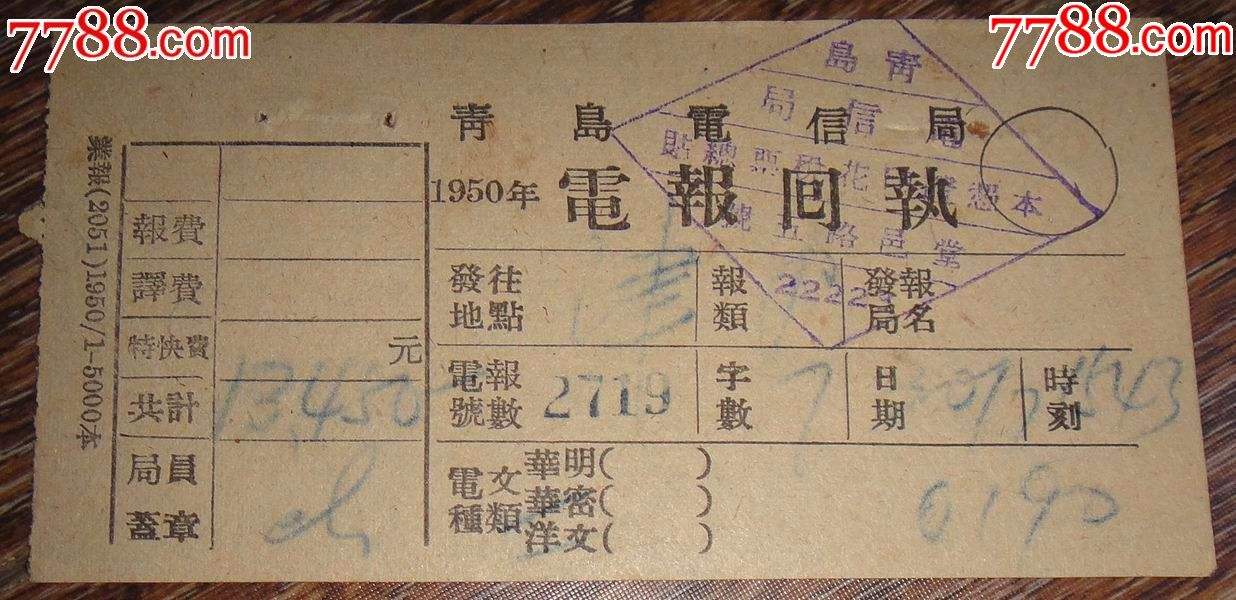 7788.com 收藏热线
7788.com 收藏热线
青島電信局
1950年 電報回執
業報(2051)1950/1-5000本
報費
譯費
特快費 元
共計 13,450
局員
蓋章
發往地點
報類
發報局名
電報號數 2719
字數 7
日期
時刻 1543
電文種類
華明( )
華密( )
洋文( )
6190
青島
電信局
本憑證印花稅票總貼
堂邑路五號
22224